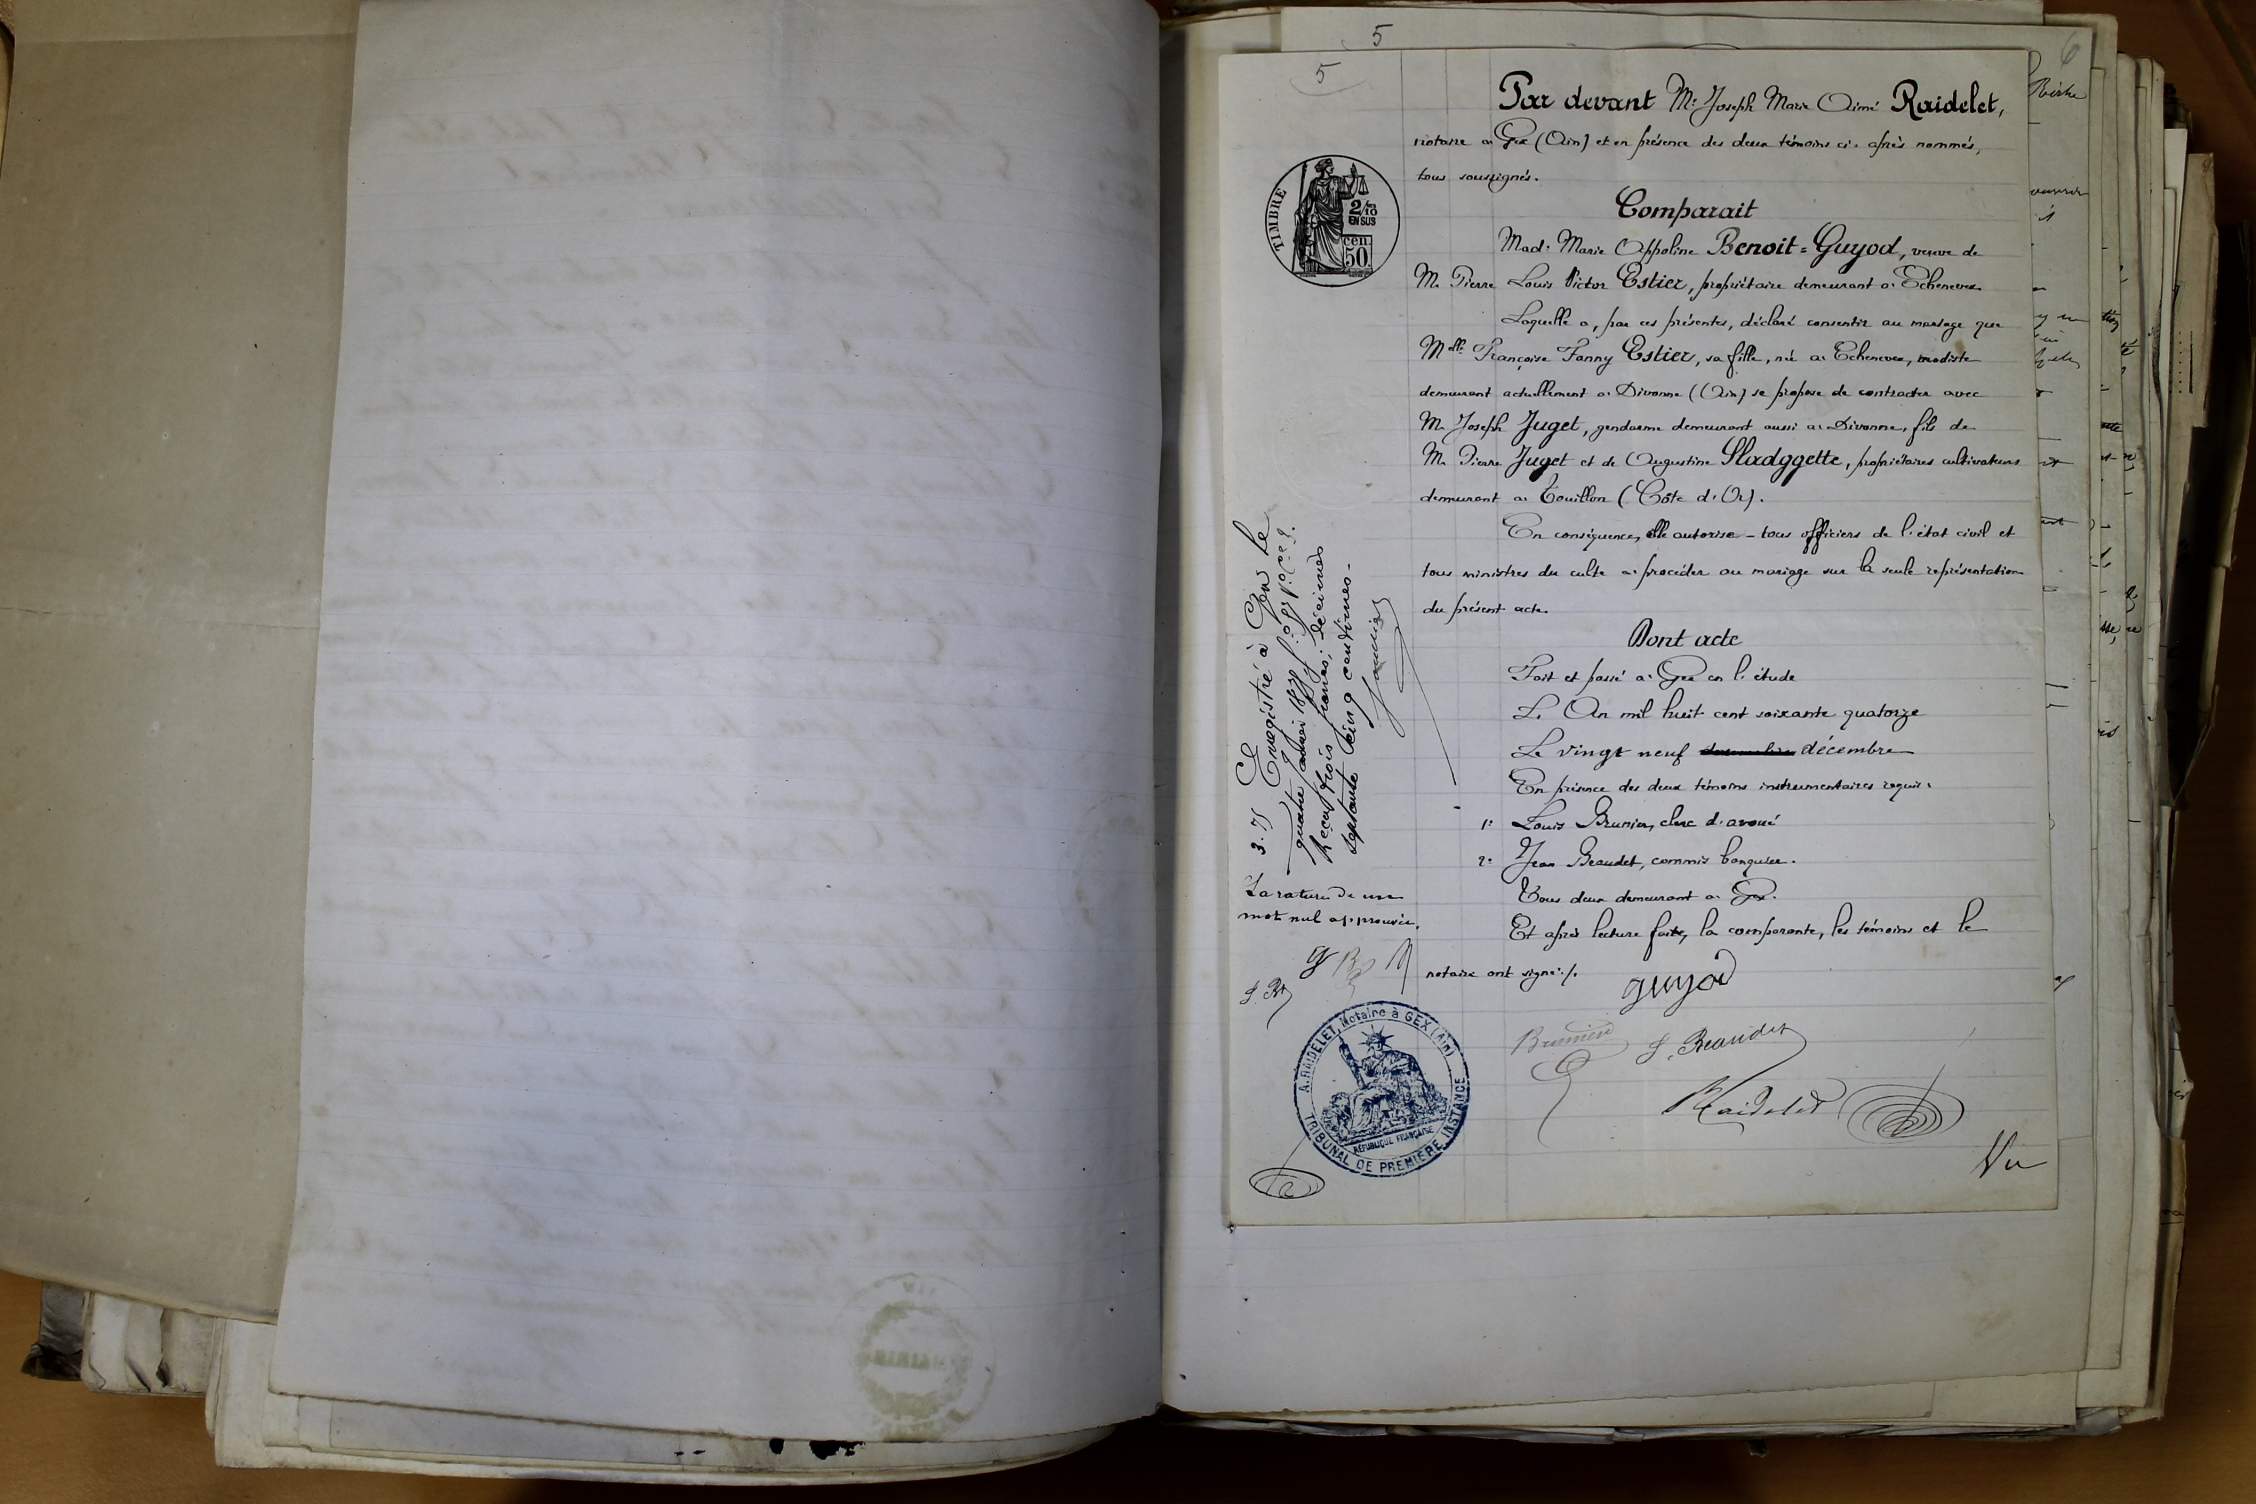 5
6
5
Par devant Me Joseph Marie Aimé Raidelet,
notaire à Gex (Ain) et en présence des deux témoins ci-après nommés,
tous soussignés.
Comparait
Made Marie Appoline Benoit=Guyod, veuve de
M. Pierre Louis Victor Estier, propriétaire demeurant à Echenevex
Laquelle a, par ces présentes, déclaré consentir au mariage que
Melle Françoise Fanny Estier, sa fille, née à Echenevex, modiste
demeurant actuellement à Divonne (Ain) se propose de contracter avec
M. Joseph Juget, gendarme demeurant aussi à Divonne, fils de
M. Pierre Juget et de Augustine Sladggette, propriétaires cultivateurs
demeurant à Touillon (Côte d'Or).
En conséquence, elle autorise - tous officiers de l'état civil et
tous ministres du culte à procéder au mariage sur la seule représentation
du présent acte.
Dont acte
Fait et passé à Gex en l'étude
L'An mil huit cent soixante quatorze
Le vingt neuf décembre
En présence des deux témoins instrumentaires requis:
1° Louis Brunier, clerc d'avoué
2° Jean Beaudet, commis banquier.
Tous deux demeurant à Gex.
Et après lecture faite, la comparante, les témoins et le
notaire ont signé./.
guyod
Brunier
J. Beaudet
Raidelet
Vu
TIMBRE
2/10
EN SUS
cen.
50.
3.75 Enregistré à Gex le
quatre janvier 1875
Reçu trois francs; décimes
septante cinq centimes -
La rature de un
mot nul approuvée.
A. RAIDELET, Notaire à GEX (Ain)
TRIBUNAL DE PREMIÈRE INSTANCE
RÉPUBLIQUE FRANÇAISE